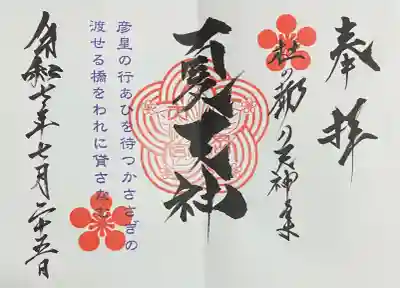 奉拝
杜の都の天神さま
夏天神
彦星の行あひを待つかささぎの
渡せる橋をわれに貸さなむ
令和七年七月二十五日